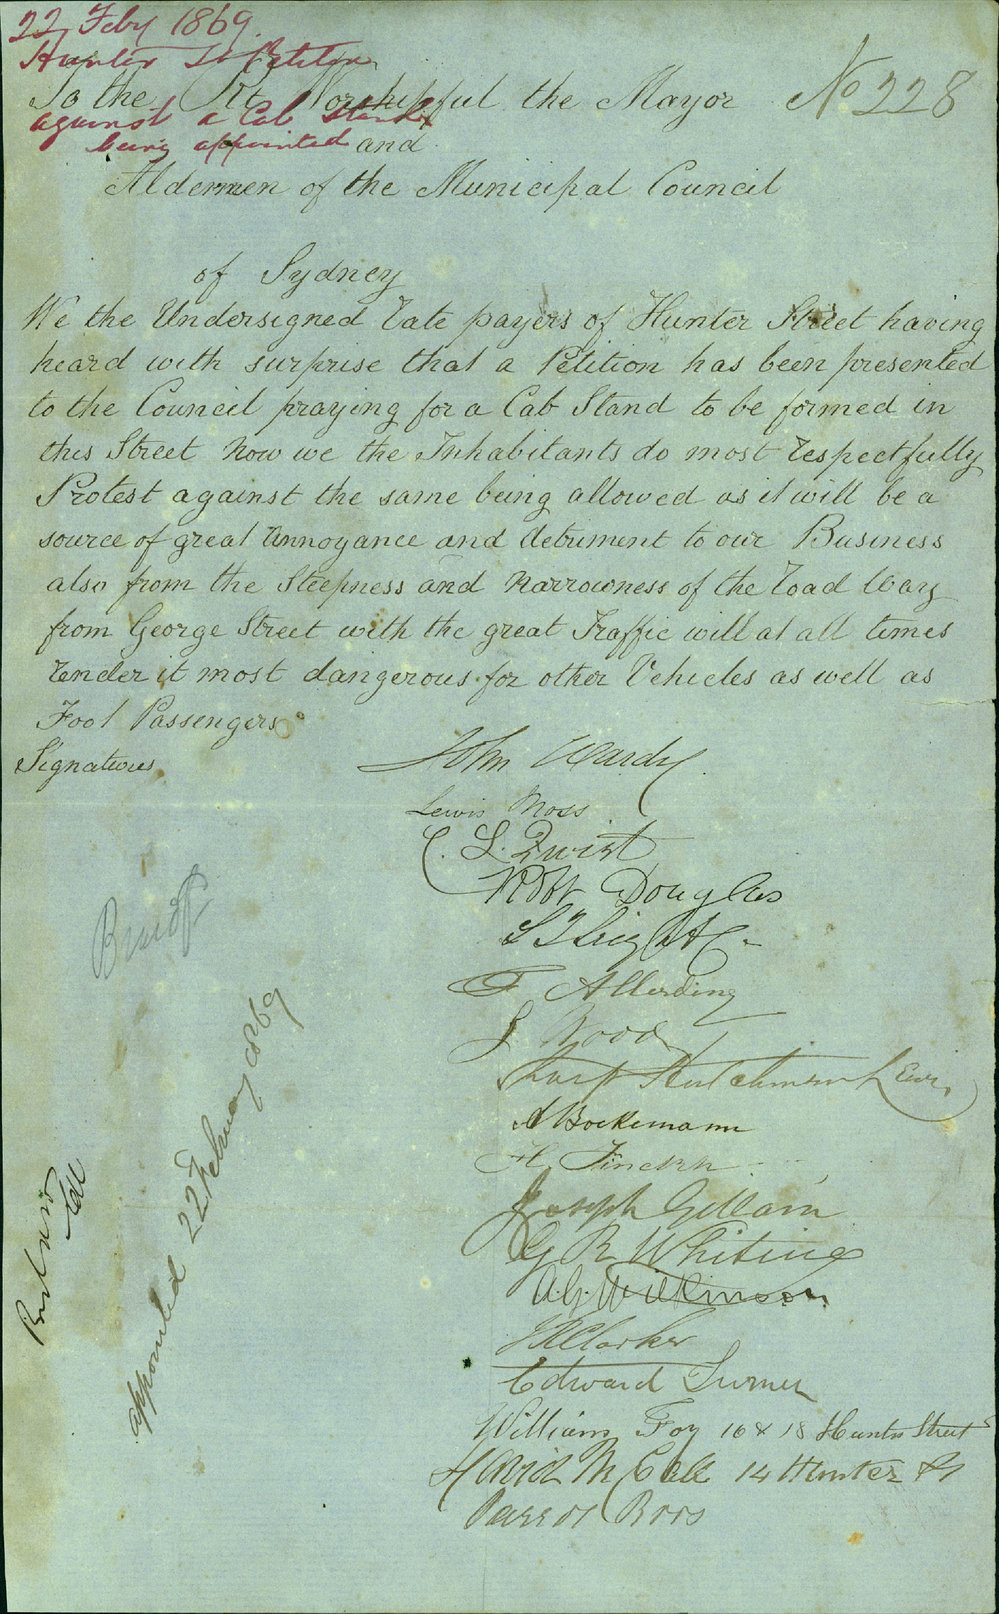 22 Feby 1869.
Hunter St Petition
against a Cab Stand
being appointed
No 228
To the Rt Worshipful the Mayor
and
Aldermen of the Municipal Council
of Sydney
We the Undersigned Rate payers of Hunter Street having
heard with surprise that a Petition has been presented
to the Council praying for a Cab Stand to be formed in
this Street Now we the Inhabitants do most respectfully
Protest against the same being allowed as it will be a
source of great Annoyance and detriment to our Business
also from the Steepness and Narrowness of the road Way
from George Street with the great Traffic will at all times
render it most dangerous for other Vehicles as well as
Foot Passengers
Signatures
John Wardy
Lewis Moss
C. L. Qwist
Robt Douglas
F Allerding
J Wood
A Bockemann
H. Finckh
Joseph Gillam
G R Whiting
A. G. Wilkinson
Clarke
Edward Turner
William Foy 16 & 18 Hunter Street
David McCall 14 Hunter St
Bros
appointed 22 February 1869